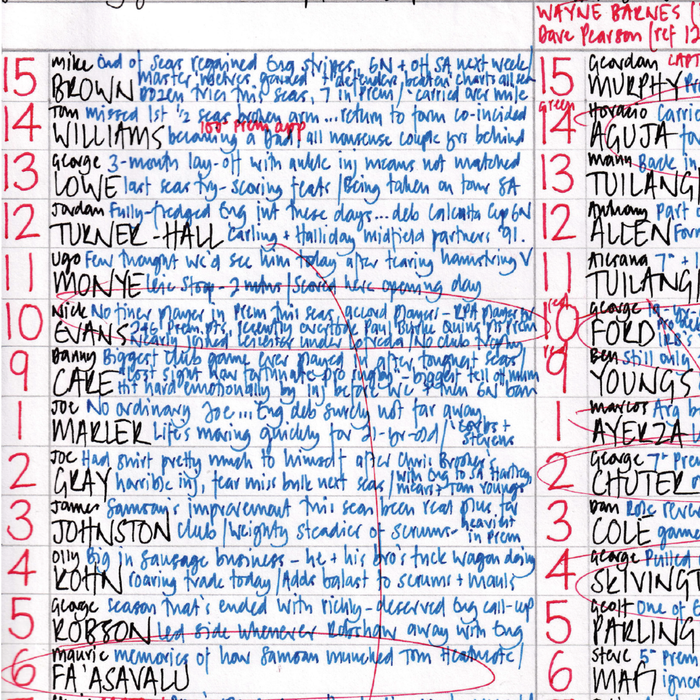 WAYNE BARNES
Dave Pearson (ref 12
15 Mike End of seas regained Eng stripes, 6N + off SA next week/
BROWN master, defenders beaten charts all
dozen tries this seas, 7 in prem / carried over mile
14 Tom missed 1st 1/2 seas broken arm...return to form co-incided
100th prem app
WILLIAMS becoming a Dad / all nonsense couple for behind
13 George 3-month lay-off with ankle inj means not matched
LOWE last seas try-scoring feats / Being taken on tour SA
12 Jordan Fully-fledged Eng int these days...deb Calcutta Cup 6N
TURNER-HALL Carling + Halliday midfield partners '91.
11 Ugo Few thought we'd see him today after tearing hamstring V
MONYE Leic 5top - 2 mths / scored here opening day
10 Nick No finer player in prem this seas, accord players - RPA player
EVANS 246 Prem pts, recently overtook Paul Burke Quins pts prem
nearly joined Leicester under / No club
9 Danny Biggest club game ever played in, after toughest seas/
CARE lost sight how fortunate pro rugby - biggest fell
hit hard emotionally by inj before WC + then 6N ban
1 Joe No ordinary Joe...Eng deb surely not far away
MARLER Life's moving quickly for 21-yr-old / Corbs +
Stevens
2 Joe Had shirt pretty much to himself after Chris Brooker's
GRAY horrible inj, fear miss bulk next seas / with Eng to SA Hartley
means Tom Youngs
3 James Samson's improvement this seas been real plus for
JOHNSTON club / Weighty steadier of scrums - heaviest
in Prem
4 Olly Big in sausage business - he + his bro's tuck wagon doing
KOHN roaring trade today / Adds balast to scrums + mauls
5 George season that's ended with richly-deserved Eng call-up
ROBSON Led side whenever Robshaw away with Eng
6 Maurie memories of how Samoan munched Tom
FA'ASAVALU
15 Geordan CAPT
MURPHY
green
14 Horacio Carried
AGUJA
13 Manu Back in
TUILAGI
12 Anthony Part
ALLEN For
11 Alesana 7th + 1
TUILAGI
red
10 George 19-yr
FORD IRB's
red
9 Ben Still only
YOUNGS
1 Marcos Arg b
AYERZA
2 George 7th Prem
CHUTER
3 Dan Role rever
COLE game
4 George Pulled
SKIVINGT
5 Geoff One of
PARLING
6 Steve 5th prem
MAFI ignor